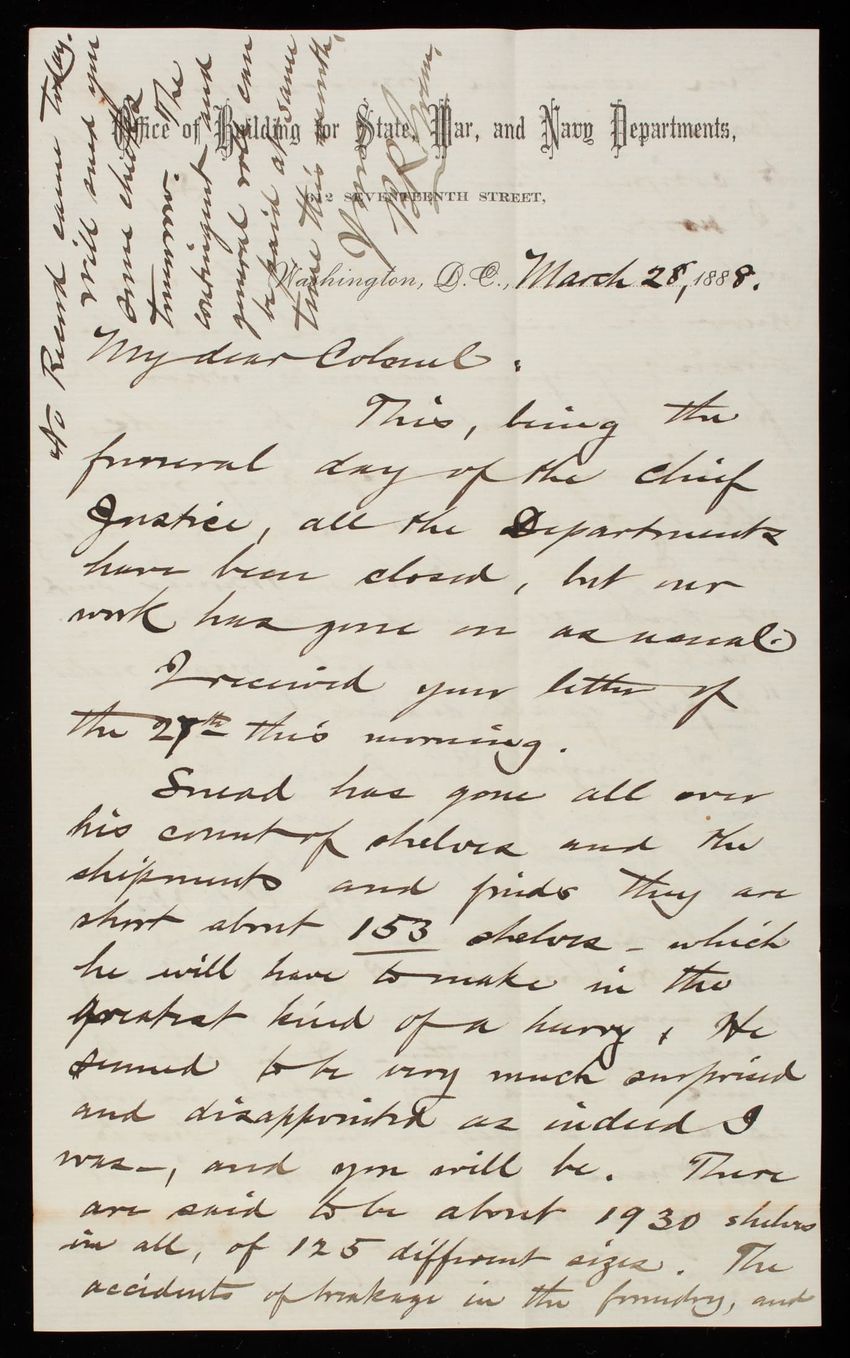 Office of Building for State, War, and Navy Departments,
612 SEVENTEENTH STREET,
Washington, D. C., March 28, 1888.
My dear Colonel:
This, being the
funeral day of the Chief
Justice, all the Departments
have been closed, but our
work has gone on as usual.
I received your letter of
the 27th this morning.
Snead has gone all over
his count of shelves and the
shipments and finds they are
short about 153 shelves - which
he will have to make in the
greatest kind of a hurry. He
seemed to be very much surprised
and disappointed as indeed I
was -, and you will be. There
are said to be about 1930 shelves
in all, of 125 different sizes. The
accidents of breakage in the foundry, and
No Record came today.
Will send you
some checks
tomorrow. The
contingent and
general roll can
be paid at same
time this month.
Yours
B R Green